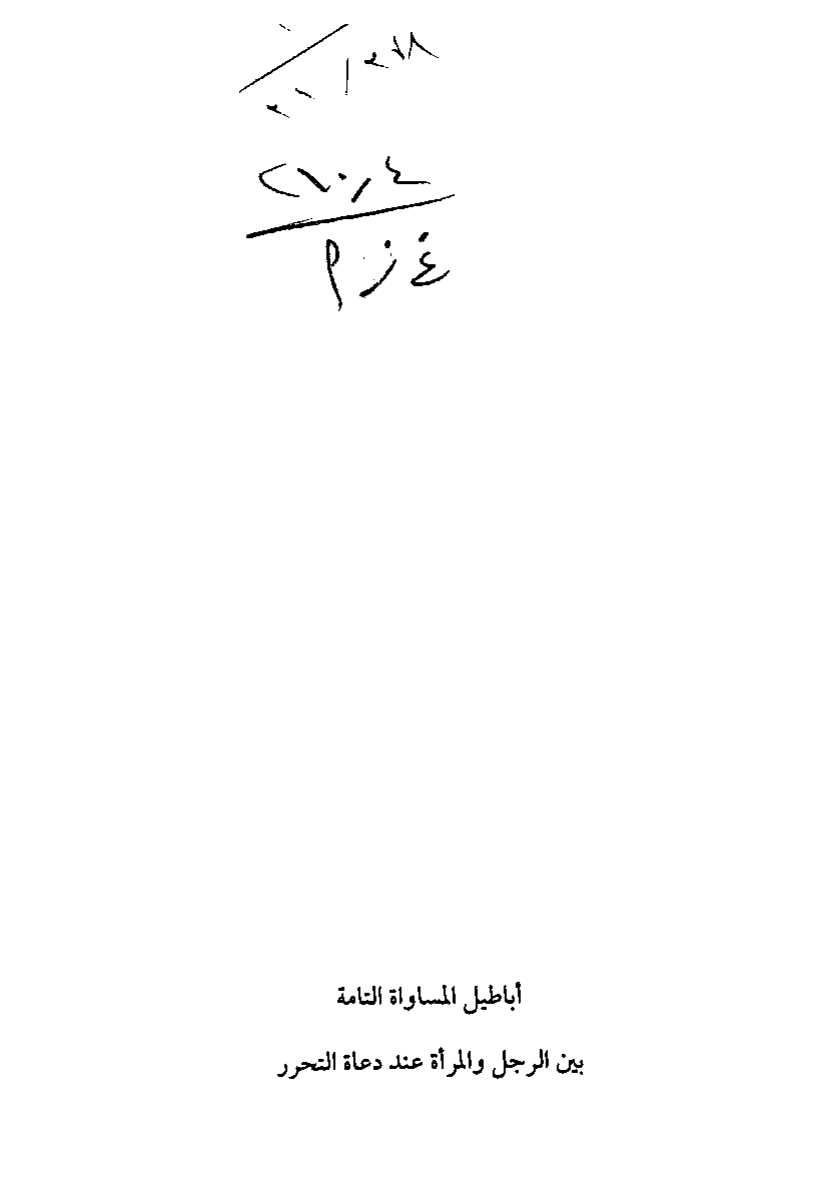 ٢١٠٫٤
غ ز م
أباطيل المساواة التامة
بين الرجل والمرأة عند دعاة التحرر